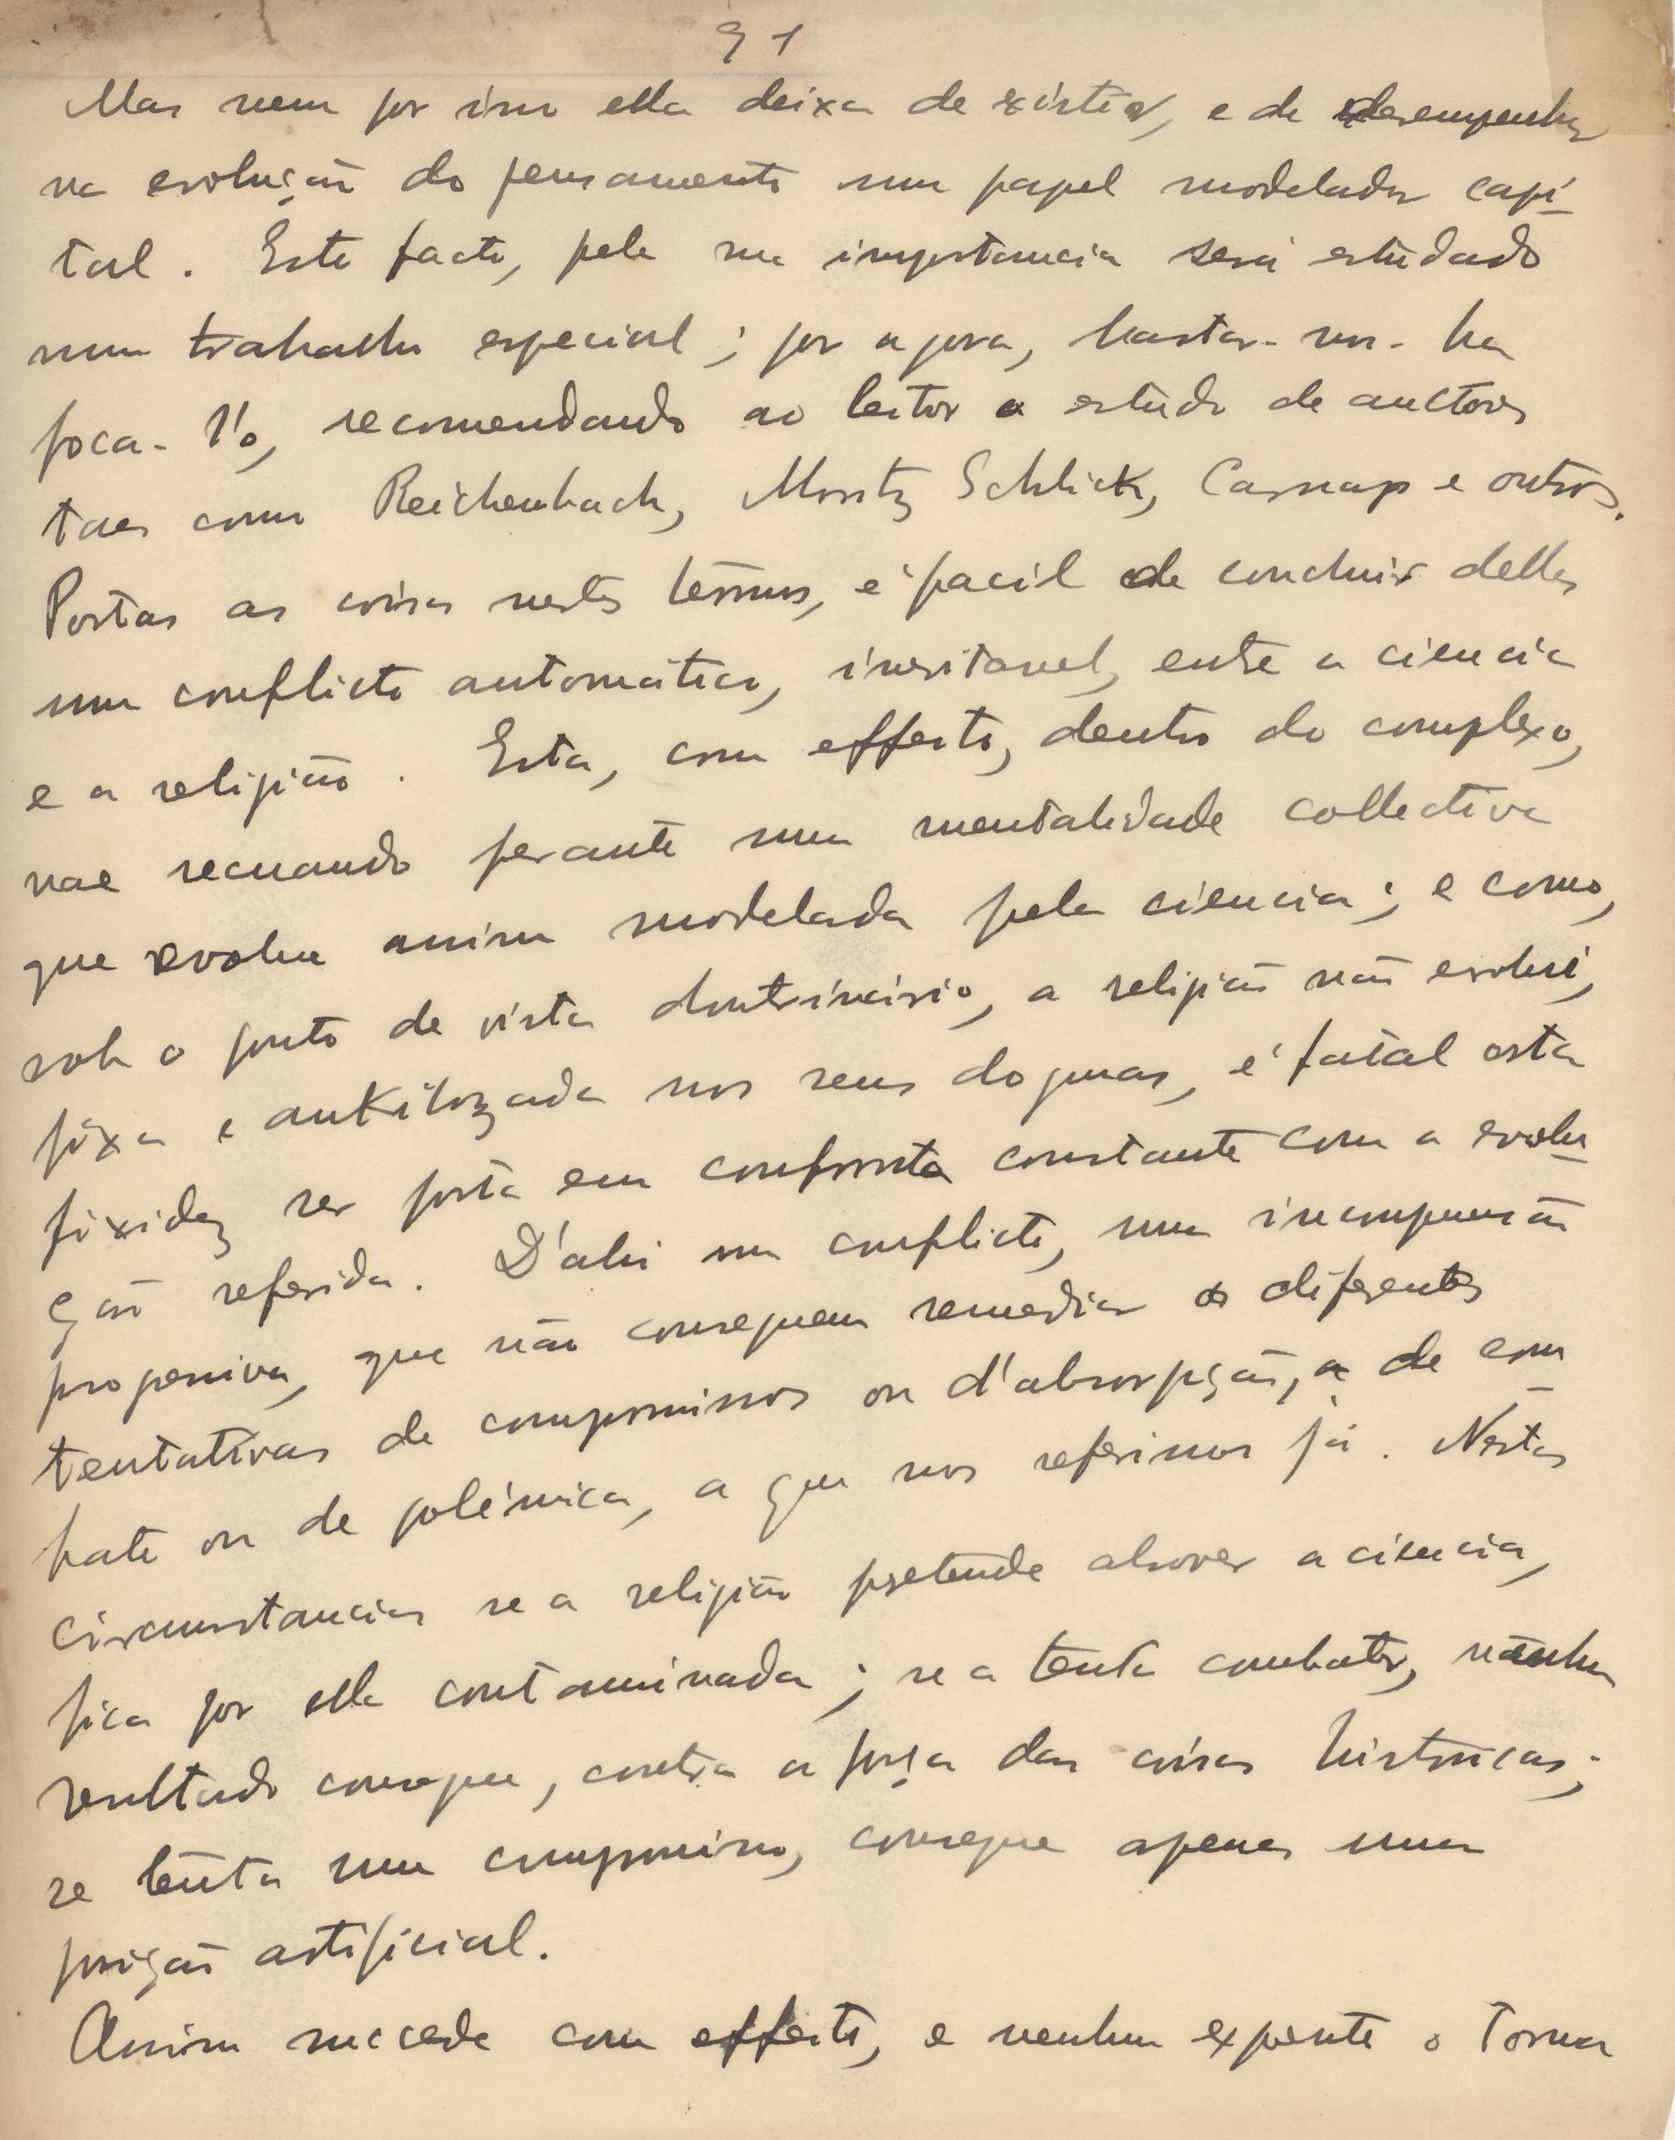 91
Mas nem por isso ella deixa de existir, e de desempenhar
na evolução do pensamento um papel modelador capi-
tal. Este facto, pela sua importancia será estudado
num trabalho especial; por agora, bastar-nos-ha
foca-l'o, recomendando ao leitor o estudo de auctores
taes como Reichenbach, Moritz Schlick, Carnap e outros.
Postas as coisas nestes termos, é facil de concluir delles
um conflicto automático, inevitavel, entre a ciencia
e a religião. Esta, com effeito, dentro do complexo,
vae recuando perante uma mentalidade collectiva
que evolue assim modelada pela ciencia; e como,
sob o ponto de vista doutrinário, a religião não evolui,
fixa e ankilozada nos seus dogmas, é fatal esta
fixidez ser posta em confronto constante com a evolu-
ção referida. D'ahi um conflicto, uma incompreensão
progressiva, que não conseguem remediar as diferentes
tentativas de compromissos ou d'absorpção, e de com-
bate ou de polémica, a que nos referimos já. Nestas
circumstancias se a religião pretende absorver a ciencia,
fica por ella contaminada; se a tenta combater, nenhum
resultado consegue, contra a força das coisas históricas;
se tenta um compromisso, consegue apenas uma
posição artificial.
Assim succede com effeito, e nenhum expoente o torna